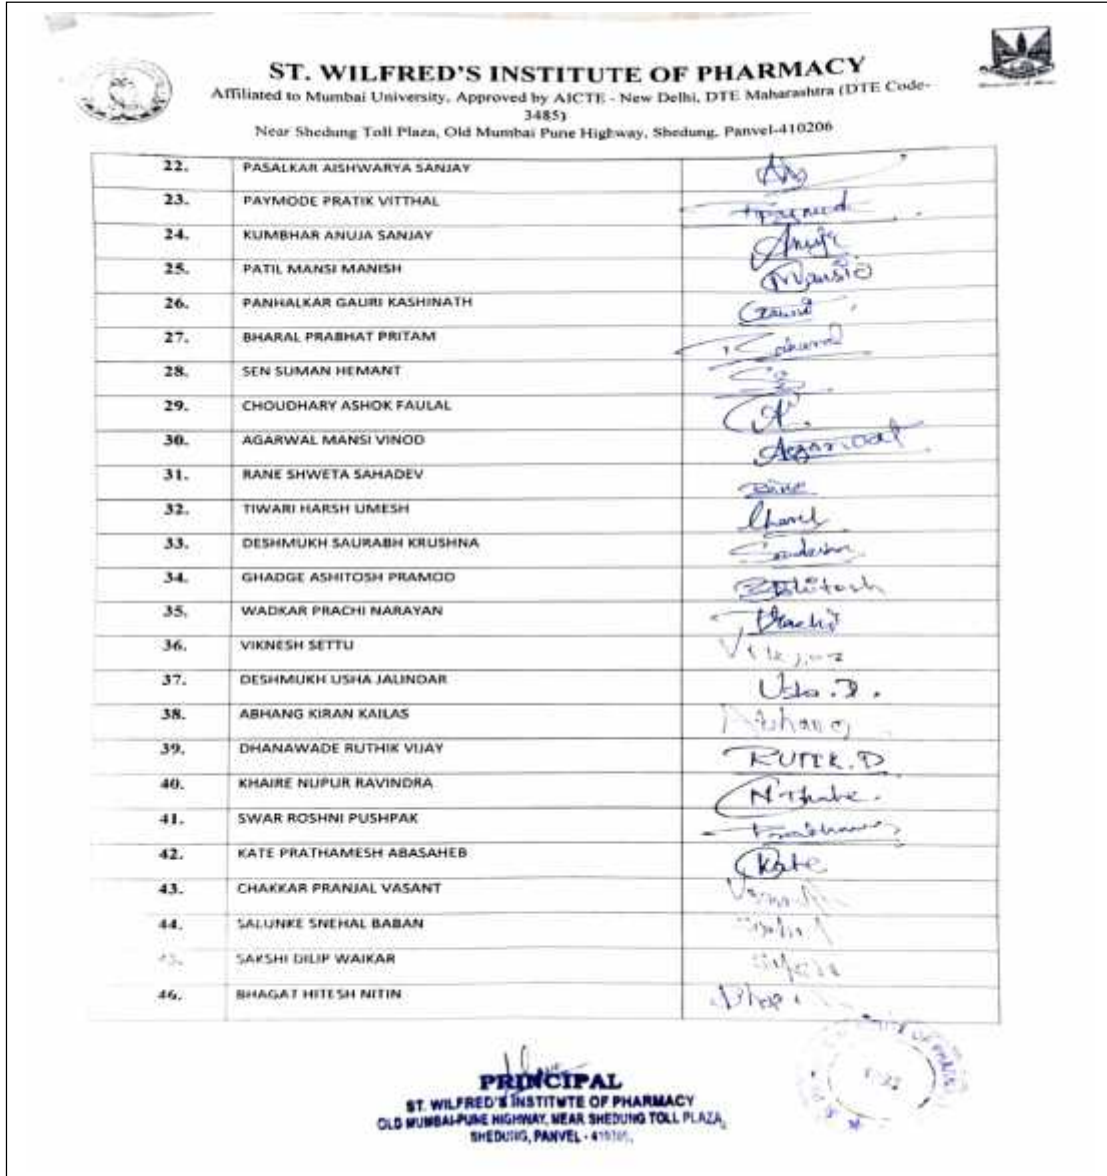 ST. WILFRED'S INSTITUTE OF PHARMACY
Affiliated to Mumbai University, Approved by AICTE - New Delhi, DTE Maharashtra (DTE Code-
3485)
Near Shedung Toll Plaza, Old Mumbai Pune Highway, Shedung, Panvel-410206
22. PASALKAR AISHWARYA SANJAY
23. PAYMODE PRATIK VITTHAL
24. KUMBHAR ANUJA SANJAY Anuja
25. PATIL MANSI MANISH Mansi
26. PANHALKAR GAURI KASHINATH
27. BHARAL PRABHAT PRITAM
28. SEN SUMAN HEMANT
29. CHOUDHARY ASHOK FAULAL
30. AGARWAL MANSI VINOD Agarwal
31. RANE SHWETA SAHADEV
32. TIWARI HARSH UMESH
33. DESHMUKH SAURABH KRUSHNA
34. GHADGE ASHITOSH PRAMOD Ashitosh
35. WADKAR PRACHI NARAYAN Prachi
36. VIKNESH SETTU
37. DESHMUKH USHA JALINDAR Usha.D.
38. ABHANG KIRAN KAILAS Abhang
39. DHANAWADE RUTHIK VIJAY
40. KHAIRE NUPUR RAVINDRA
41. SWAR ROSHNI PUSHPAK
42. KATE PRATHAMESH ABASAHEB Kate
43. CHAKKAR PRANJAL VASANT
44. SALUNKE SNEHAL BABAN
45. SAKSHI DILIP WAIKAR
46. BHAGAT HITESH NITIN
PRINCIPAL
ST. WILFRED'S INSTITUTE OF PHARMACY
OLD MUMBAI-PUNE HIGHWAY, NEAR SHEDUNG TOLL PLAZA,
SHEDUNG, PANVEL -
OF